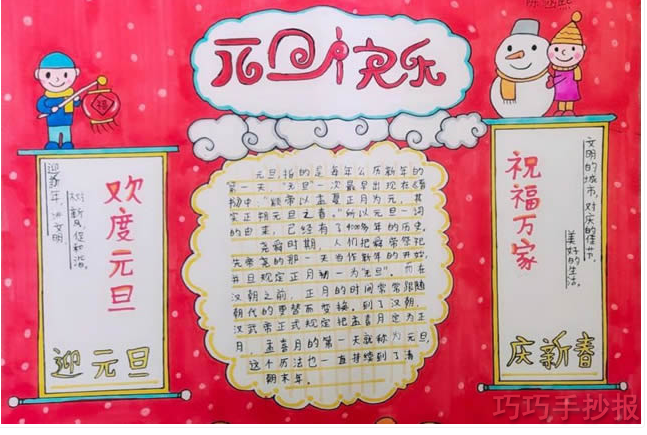 元旦快乐
欢度元旦
迎新年,讲文明
树新风,促和谐。
迎元旦
元旦,指的是每年公历新年的
第一天,"元旦"一次最早出现在《晋
书》中:"颛帝以孟夏正月为元,其
实正朔元旦之春。"所以元旦一词
的由来,已经有了4000多年的历史。
尧舜时期,人们把舜帝祭祀
先帝尧的那一天当作新年的开始,
并且规定正月初一为"元旦"。而在
汉朝之前,正月的时间常常跟随
朝代的更替而变换。到了汉朝,
汉武帝正式规定把孟喜月定为正
月,孟喜月的第一天就称为元旦,
这个历法也一直持续到了清
朝末年。
祝福万家
文明的城市,对庆的佳节,
美好的生活。
庆新春
福
巧巧手抄报